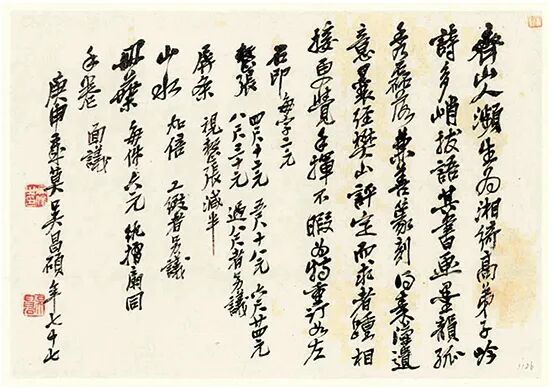 齊山人瀕生為湘綺高弟子吟
詩多峭拔語其書画墨韻孤
秀磊落兼善篆刻得秦漢遺
意曩經樊山評定而求者踵相
接更覺手揮不暇為特重訂如左
石印 每字二元
整張 四尺十二元 五尺十八元 六尺廿四元
八尺三十元 過八尺者另議
屏条 視整張減半
山水 加倍 工緻者另議
冊葉 每件六元 紈摺扇同
手卷 面議
庚申歲莫吳昌碩年七十七